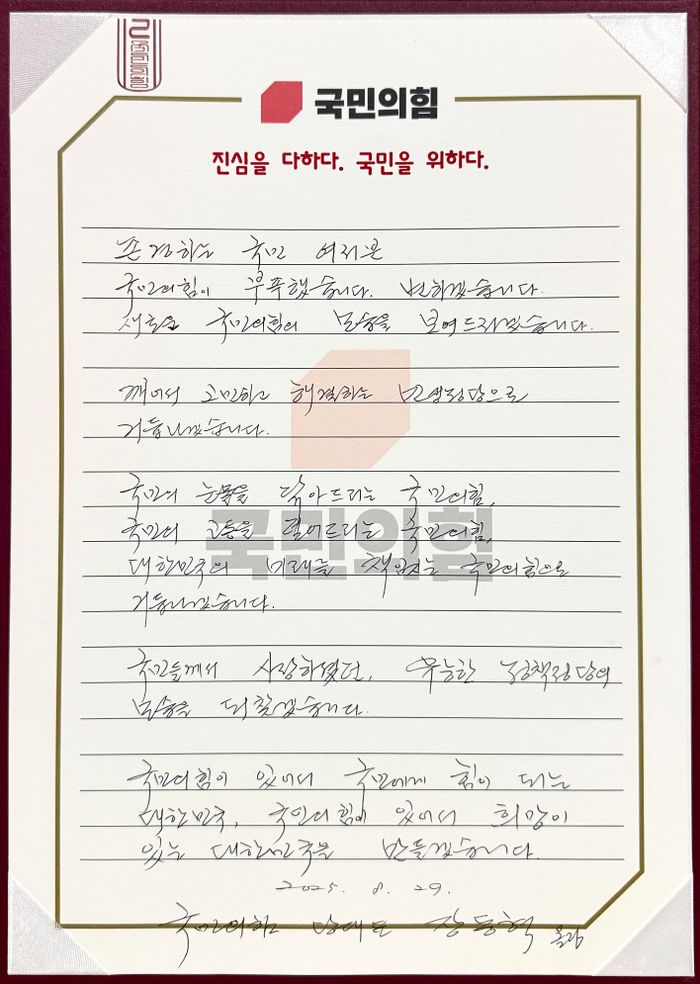 국민의힘
진심을 다하다. 국민을 위하다.
존경하는 국민 여러분
국민의힘이 부족했습니다. 변하겠습니다.
새로운 국민의힘의 모습을 보여드리겠습니다.
깨어서 고민하고 해결하는 민생정당으로
거듭나겠습니다.
국민의 눈물을 닦아드리는 국민의힘,
국민의 고통을 덜어드리는 국민의힘,
대한민국의 미래를 책임지는 국민의힘으로
거듭나겠습니다.
국민의힘
국민들께서 사랑하셨던, 유능한 정책정당의
모습을 되찾겠습니다.
국민의힘이 있어서 국민에게 힘이 되는
대한민국, 국민의힘이 있어서 희망이
있는 대한민국을 만들겠습니다.
2025. 8. 29.
국민의힘 당대표 장동혁 올림